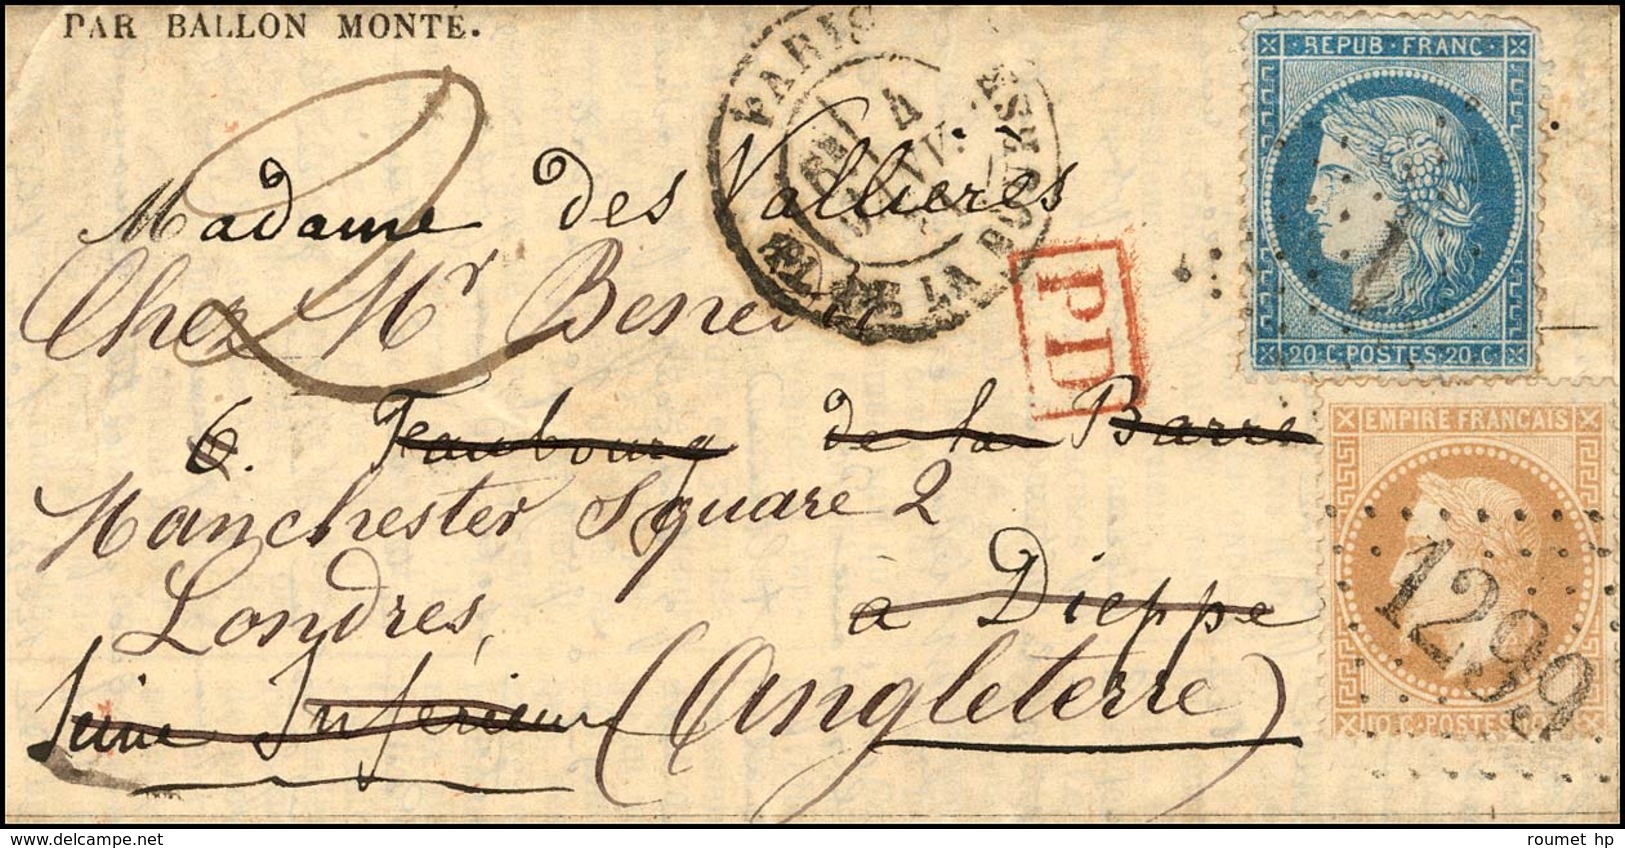 PAR BALLON MONTÉ.
PARIS
4
PL. DE LA BOURSE
REPUB · FRANC
20·C·POSTES·20·C
1
PD
Madame des Vallieres
Chez Mr
6. Faubourg de la Barre
Manchester Square 2
Londres,
à Dieppe
Seine Inférieure (Angleterre)
EMPIRE FRANÇAIS
10·C·POSTES
1299
roumet hp